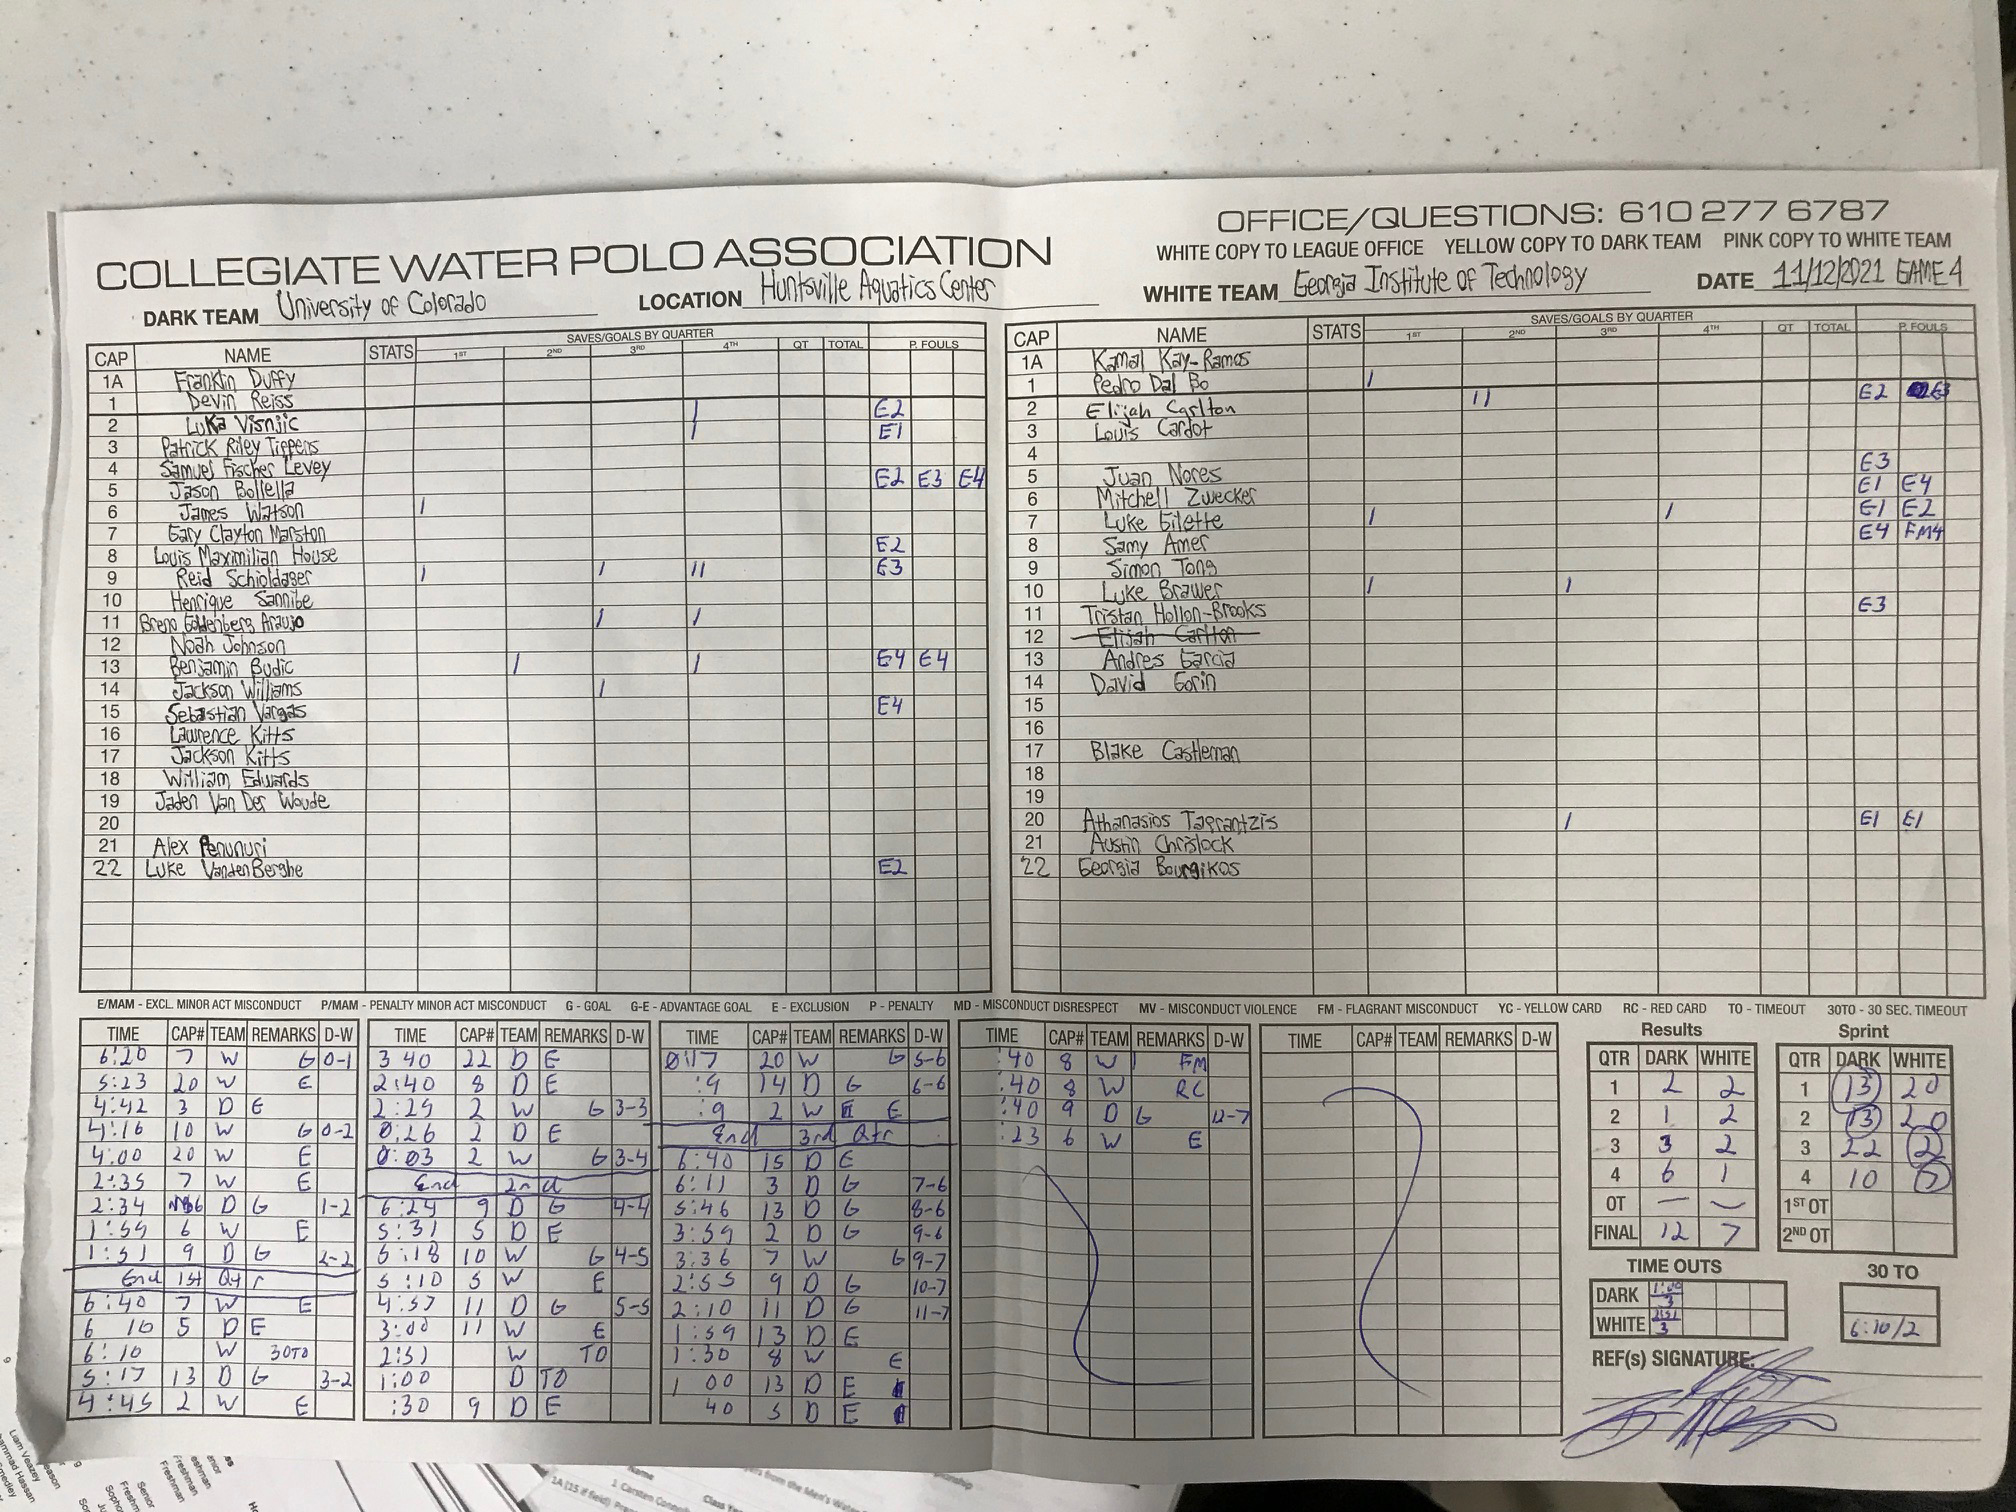 OFFICE/QUESTIONS: 610 277 6787
COLLEGIATE WATER POLO ASSOCIATION
WHITE COPY TO LEAGUE OFFICE YELLOW COPY TO DARK TEAM PINK COPY TO WHITE TEAM
DARK TEAM University of Colorado LOCATION Huntsville Aquatics Center WHITE TEAM Georgia Institute of Technology DATE 11/12/2021 GAME 4
CAP NAME STATS SAVES/GOALS BY QUARTER 1ST 2ND 3RD 4TH QT TOTAL P. FOULS
1A Franklin Duffy
1 Devin Reiss
2 Luka Visnjic / E2
3 Patrick Riley Tippens / E1
4 Samuel Fischer Levey
5 Jason Bollella E2 E3 E4
6 James Watson /
7 Gary Clayton Marston
8 Louis Maximilian House E2
9 Reid Schioldager / / // E3
10 Henrique Sannibe
11 Breno Goldenberg Araujo / /
12 Noah Johnson
13 Benjamin Budic / / E4 E4
14 Jackson Williams /
15 Sebastian Vargas E4
16 Lawrence Kitts
17 Jackson Kitts
18 William Edwards
19 Jaden Van Der Woude
20
21 Alex Penunuri
22 Luke VandenBerghe E2
CAP NAME STATS SAVES/GOALS BY QUARTER 1ST 2ND 3RD 4TH QT TOTAL P. FOULS
1A Kamal Kay-Ramos
1 Pedro Dal Bo /
2 Elijah Carlton // E2 E3
3 Louis Cardot
4
5 Juan Nores E3
6 Mitchell Zwecker E1 E4
7 Luke Gilette / / E1 E2
8 Samy Amer E4 FM4
9 Simon Tong
10 Luke Brawer / /
11 Tristan Hollon-Brooks E3
12 Elijah Carlton
13 Andres Garcia
14 David Gorin
15
16
17 Blake Castleman
18
19
20 Athanasios Tagrantzis / E1 E1
21 Austin Chrislock
22 Georgia Bourgikos
E/MAM - EXCL. MINOR ACT MISCONDUCT P/MAM - PENALTY MINOR ACT MISCONDUCT G - GOAL G-E - ADVANTAGE GOAL E - EXCLUSION P - PENALTY MD - MISCONDUCT DISRESPECT MV - MISCONDUCT VIOLENCE FM - FLAGRANT MISCONDUCT YC - YELLOW CARD RC - RED CARD TO - TIMEOUT 30TO - 30 SEC. TIMEOUT
TIME CAP# TEAM REMARKS D-W
6:20 7 W G 0-1
5:23 20 W E
4:42 3 D E
4:16 10 W G 0-2
4:00 20 W E
2:35 7 W E
2:34 6 D G 1-2
1:59 6 W E
1:51 9 D G 2-2
End 1st Qtr
6:40 7 W E
6 16 5 D E
6:10 W 30TO
5:17 13 D G 3-2
4:45 2 W E
TIME CAP# TEAM REMARKS D-W
3 40 22 D E
2:40 8 D E
2:29 2 W G 3-3
0:26 2 D E
0:03 2 W G 3-4
End 2nd
6:29 9 D G 4-4
5:31 5 D E
5:18 10 W G 4-5
5:10 5 W E
4:57 11 D G 5-5
3:00 11 W E
2:51 W TO
1:00 D TO
:30 9 D E
TIME CAP# TEAM REMARKS D-W
0:17 20 W G 5-6
:9 14 D G 6-6
:9 2 W E
End 3rd Qtr
6:40 15 D E
6:11 3 D G 7-6
5:46 13 D G 8-6
3:59 2 D G 9-6
3:36 7 W G 9-7
2:55 9 D G 10-7
2:10 11 D G 11-7
1:59 13 D E
1:30 8 W E
1 00 13 D E
40 5 D E
TIME CAP# TEAM REMARKS D-W
:40 8 W FM
:40 8 W RC
:40 9 D G 12-7
:23 6 W E
TIME CAP# TEAM REMARKS D-W
Results
QTR DARK WHITE
1 2 2
2 1 2
3 3 2
4 6 1
OT — —
FINAL 12 7
Sprint
QTR DARK WHITE
1 13 20
2 13 20
3 22 2
4 10
1ST OT
2ND OT
TIME OUTS
DARK 1:00 3
WHITE 2:51 3
30 TO
6:10/2
REF(s) SIGNATURE:
Liam Veazey
Smedley
Senior
Freshman
Freshman
Name
1 Carsten